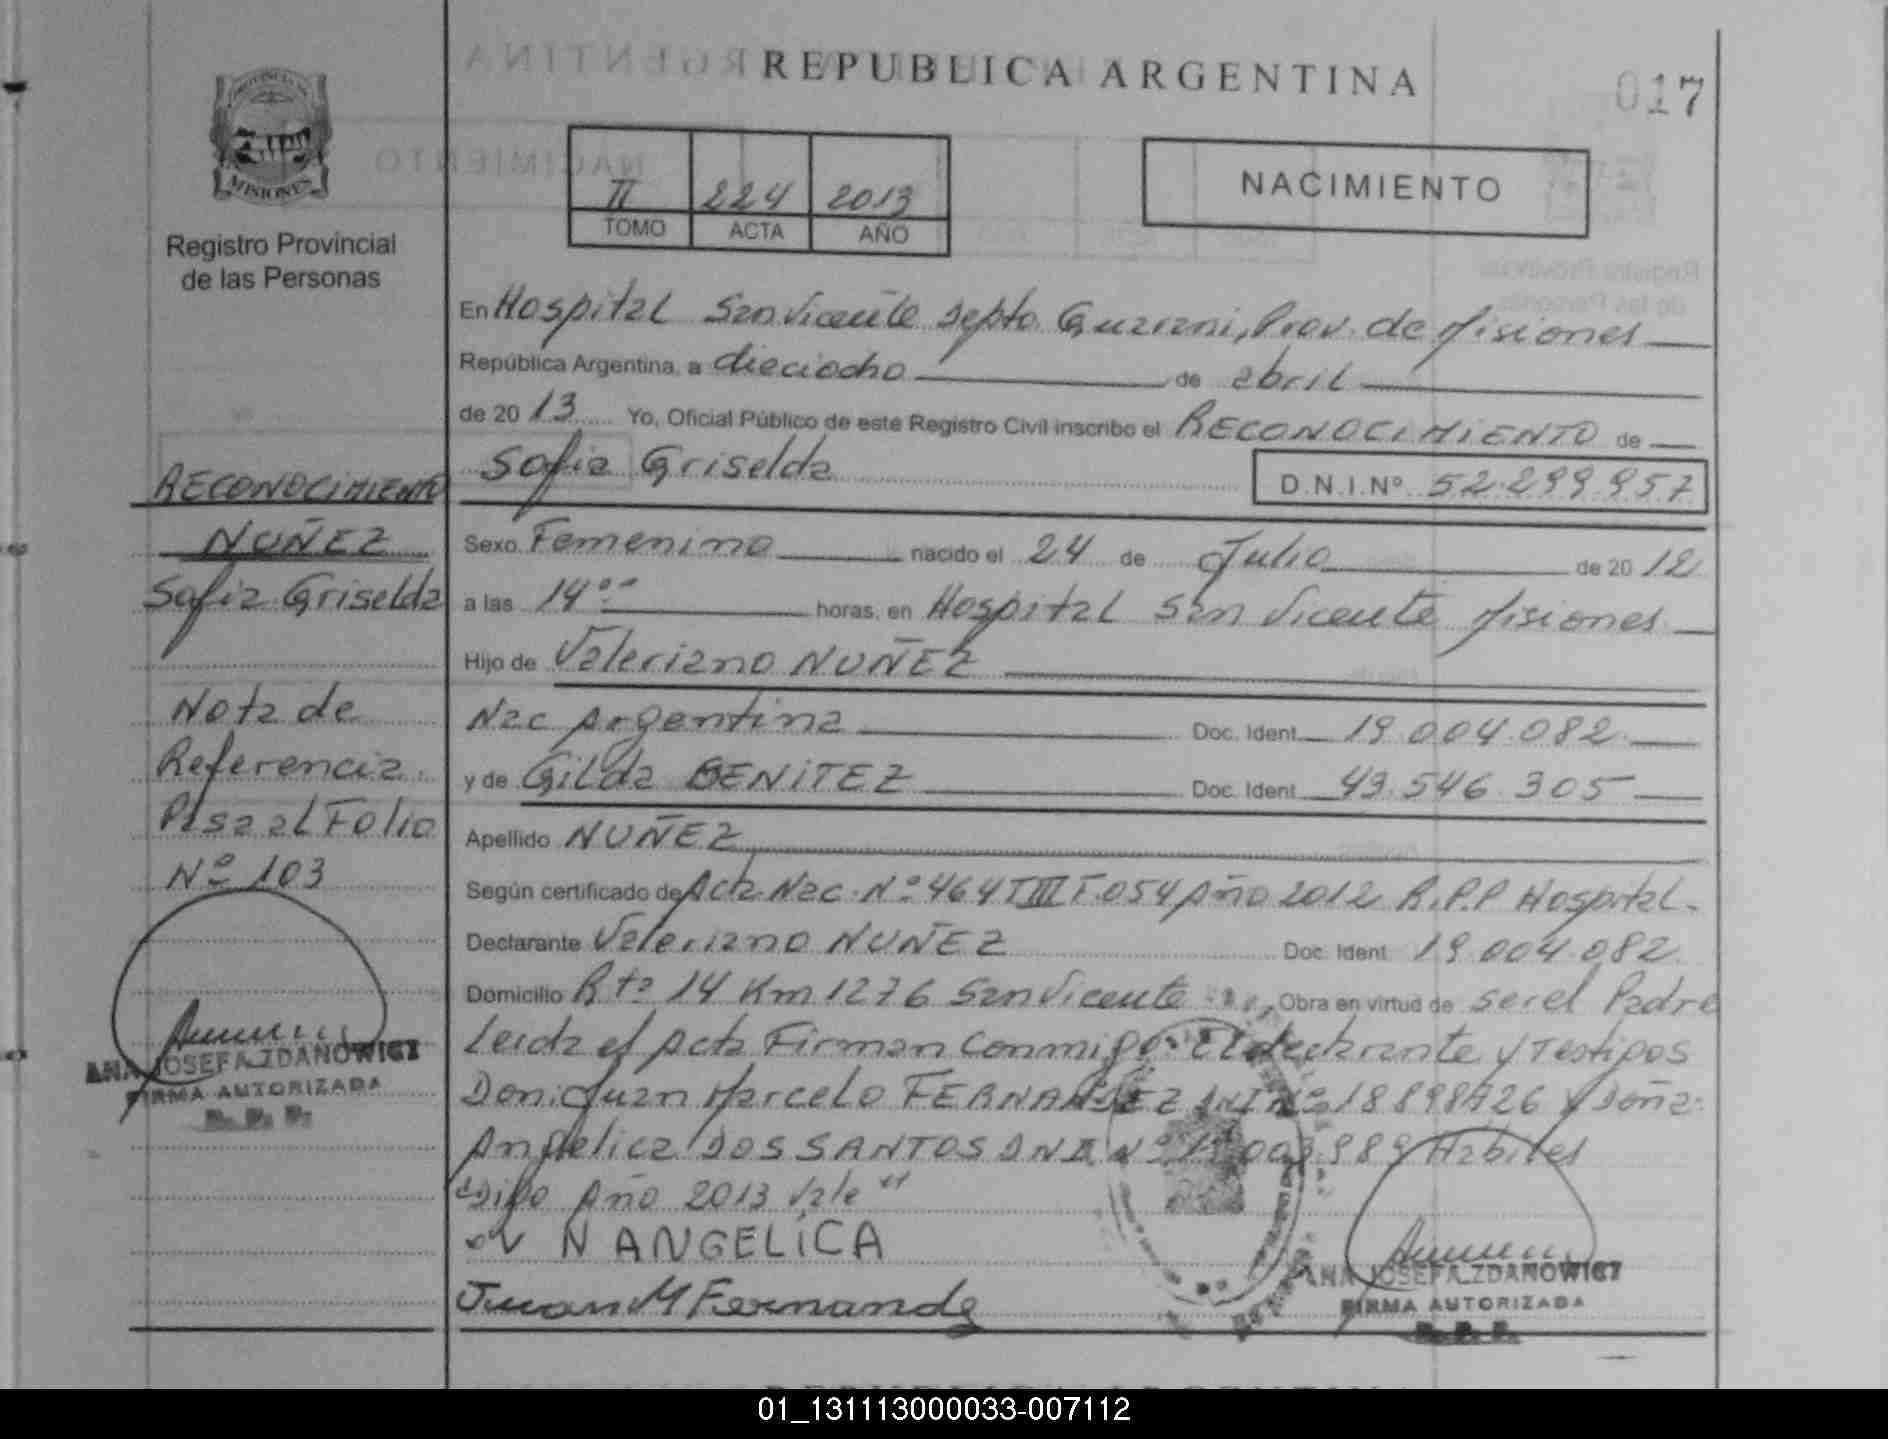 REPUBLICA ARGENTINA
017
PROVINCIA DE
MISIONES
Registro Provincial
de las Personas
II 224 2013
TOMO ACTA AÑO
NACIMIENTO
En Hospital San Vicente Depto Guarani, Prov. de Misiones
República Argentina, a dieciocho de abril
de 20 13 Yo, Oficial Público de este Registro Civil inscribo el RECONOCIMIENTO de
Sofia Griselda D.N.I.Nº 52.299.957
Sexo Femenino nacido el 24 de Julio de 20 12
a las 14 horas, en Hospital San Vicente Misiones
Hijo de Valeriano NUÑEZ
Nac Argentina Doc. Ident. 19.004.082
y de Gilda BENITEZ Doc. Ident. 43.546.305
Apellido NUÑEZ
Según certificado de Acta Nac. Nº 464 T III F.054 Año 2012 R.P.P Hospital
Declarante Valeriano NUÑEZ Doc. Ident. 19.004.082
Domicilio Rta 14 Km 1276 San Vicente Obra en virtud de ser el Padre
Leida el Acta Firman Conmigo El declarante y Testigos
Don: Juan Marcelo FERNANDEZ DNI Nº 18898726 y Doña:
Angelica DOS SANTOS DNI Nº 003.989 Habiles
"Digo Año 2013 Vale"
N ANGELICA
Juan M Fernandz
ANA JOSEFA ZDANOWICZ
FIRMA AUTORIZADA
R. P. P.
RECONOCIMIENTO
NUÑEZ
Sofia Griselda
Nota de
Referencia
Pasa al Folio
Nº 103
ANA JOSEFA ZDANOWICZ
FIRMA AUTORIZADA
R. P. P.
01_131113000033-007112